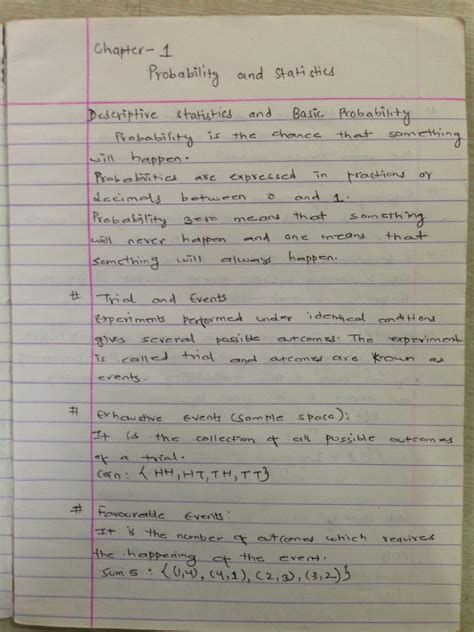 Chapter - 1
Probability and Statistics
Descriptive statistics and Basic Probability
Probability is the chance that something
will happen.
Probabilities are expressed in fractions or
decimals between 0 and 1.
Probability zero means that something
will never happen and one means that
something will always happen.
# Trial and Events
Experiments performed under identical conditions
gives several possible outcomes. The experiment
is called trial and outcomes are known as
events.
# Exhaustive Events (sample space):
It is the collection of all possible outcomes
of a trial.
Coin: { HH, HT, TH, TT}
# Favourable Events:
It is the number of outcomes which requires
the happening of the event.
Sum 5 : {(1,4), (4,1), (2,3), (3,2)}